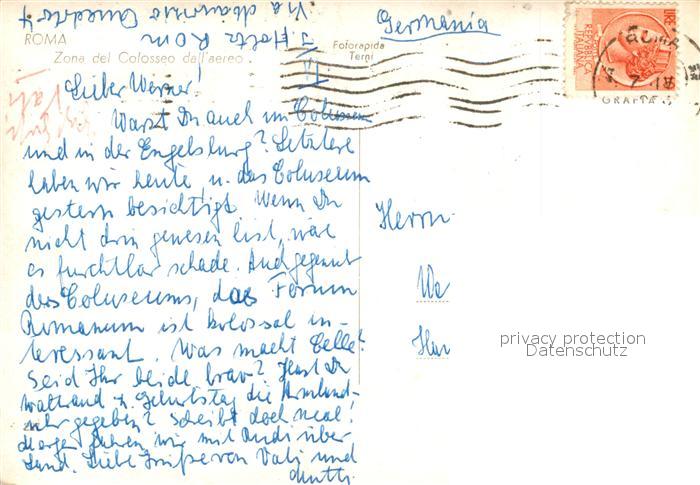 ROMA
Zona del Colosseo dall'aereo
Fotorapida
Terni
Germania
ROMA
REPVBBLICA
ITALIANA
Lieber Werner!
Warst Du auch im Coluseum
und in der Engelsburg? Letztere
haben wir heute u. das Coluseum
gestern besichtigt. Wenn Du
nicht drin gewesen bist, wäre
es furchtbar schade. Auch gegenüber
des Coluseums, das Forum
Romanum ist kolossal in-
teressant. Was macht Celle?
Seid Ihr beide brav? Hast Du
Waltraud z. Geburtstag die Armband-
uhr gegeben? Schreibt doch mal!
Morgen fahren wir mit Rudi über
Land. Liebe Grüße von Vati und
Mutti
Herrn
We
Han
privacy protection
Datenschutz